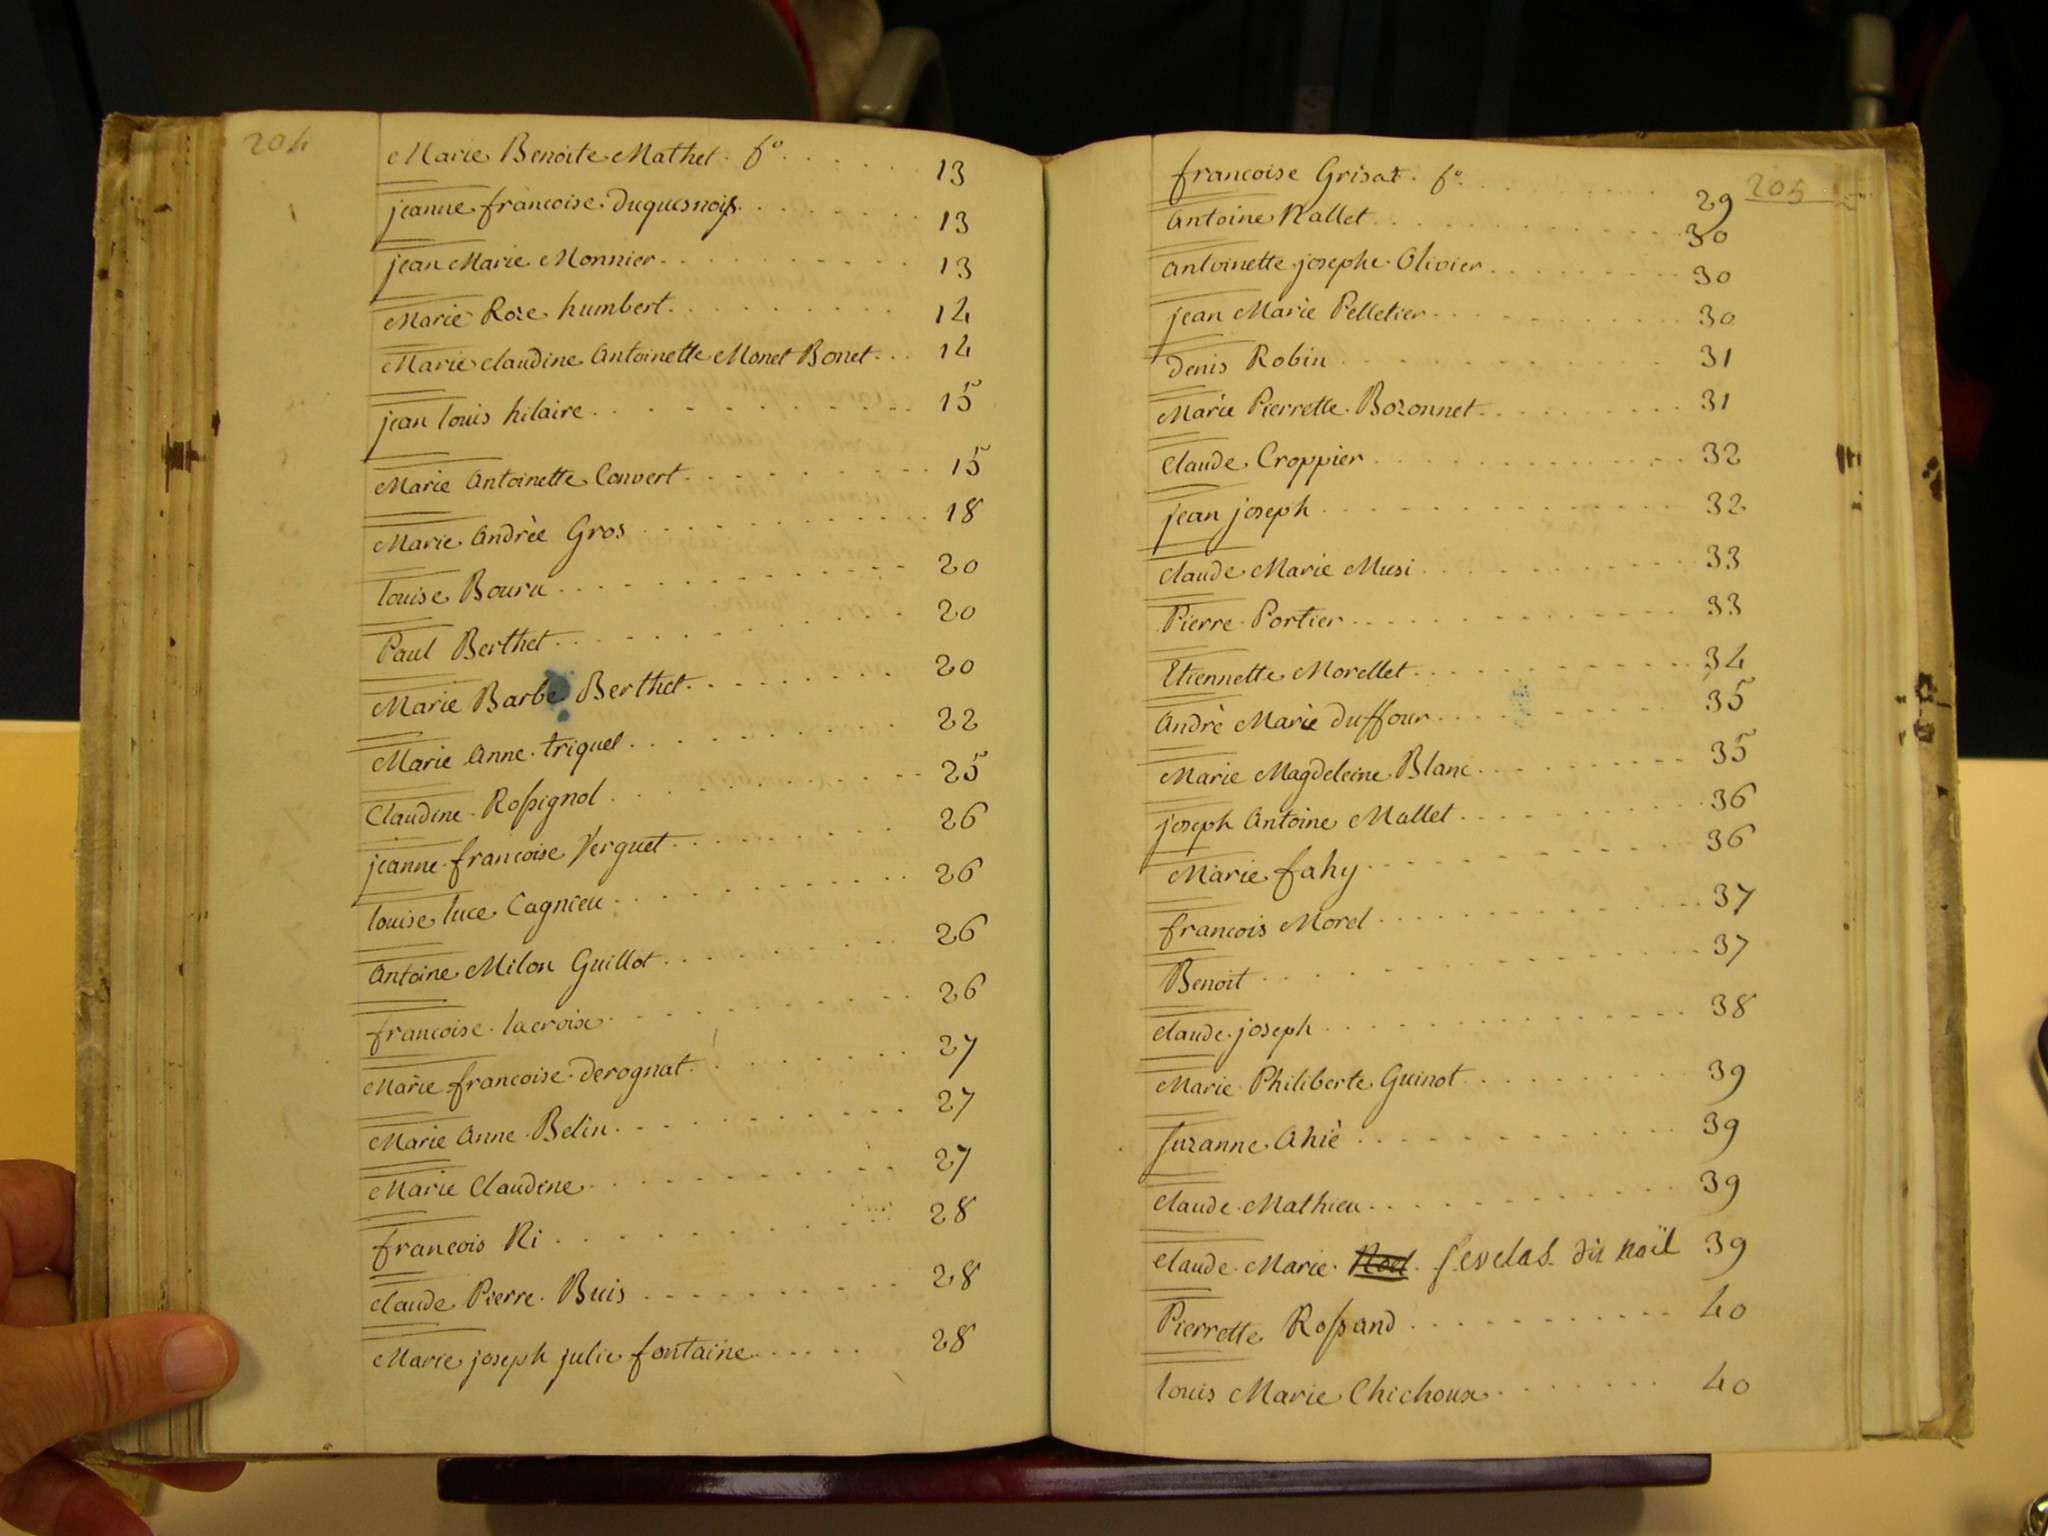 204
Marie Benoite Mathet. fo. 13
jeanne francoise Duquesnois. 13
jean Marie Monnier. 13
Marie Rose humbert. 14
Marie claudine Antoinette Monet Bonet. 14
jean louis hilaire. 15
Marie Antoinette Convert. 15
Marie Andrèe Gros 18
louise Bouru 20
Paul Berthet. 20
Marie Barbe Berthet. 20
Marie Anne triquet. 22
Claudine Rossignol. 25
jeanne francoise Verguet. 26
louise luce Cagnieu. 26
Antoine Milon Guillot. 26
francoise lacroix. 26
Marie francoise Derognat. 27
Marie Anne Belin. 27
Marie Claudine. 27
francois Ri. 28
claude Pierre Buis 28
Marie joseph julie fontaine. 28
205
francoise Grisat. fo. 29
Antoine Nallet. 30
Antoinette josephe Olivier. 30
jean Marie Pelletier. 30
Denis Robin. 31
Marie Pierrette Bozonnet. 31
Claude Croppier. 32
jean joseph. 32
Claude Marie Musi. 33
Pierre Portier. 33
Etiennette Morellet. 34
Andrè Marie Duffour. 35
Marie Magdeleine Blanc. 35
joseph Antoine Mallet. 36
Marie fahy. 36
francois Morel. 37
Benoit. 37
Claude joseph. 38
Marie Philiberte Guinot. 39
Suzanne Ahiè. 39
Claude Mathieu. 39
Claude Marie Noel. Sevelas dit noël 39
Pierrette Rossand. 40
louis Marie Chichoux. 40